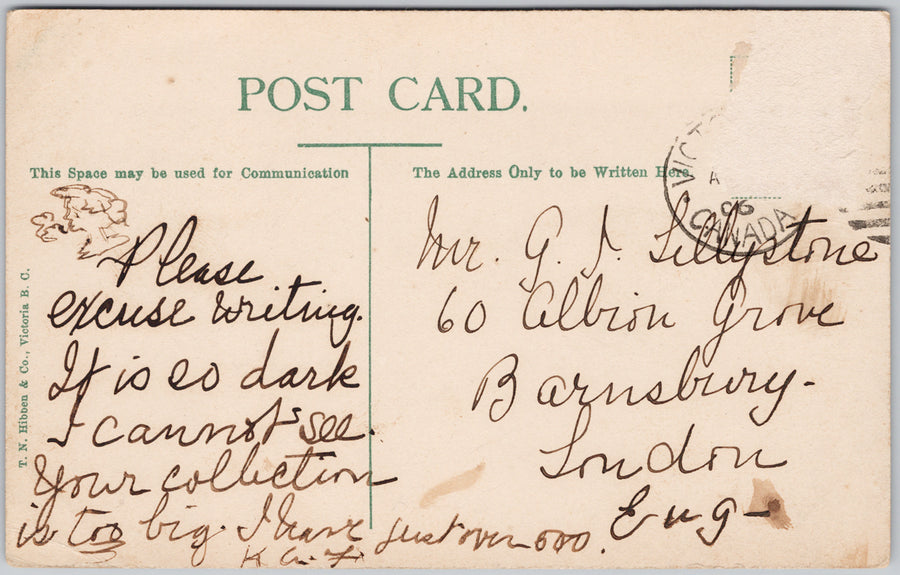 POST CARD.
This Space may be used for Communication
The Address Only to be Written Here.
T. N. Hibben & Co., Victoria B. C.
VICT
A
06
CANADA
Please
excuse writing.
It is so dark
I cannot see.
Your collection
is too big. I have just over 500.
Mr. G. J. Sillystone
60 Albion Grove
Barnsbury-
London
Eng-